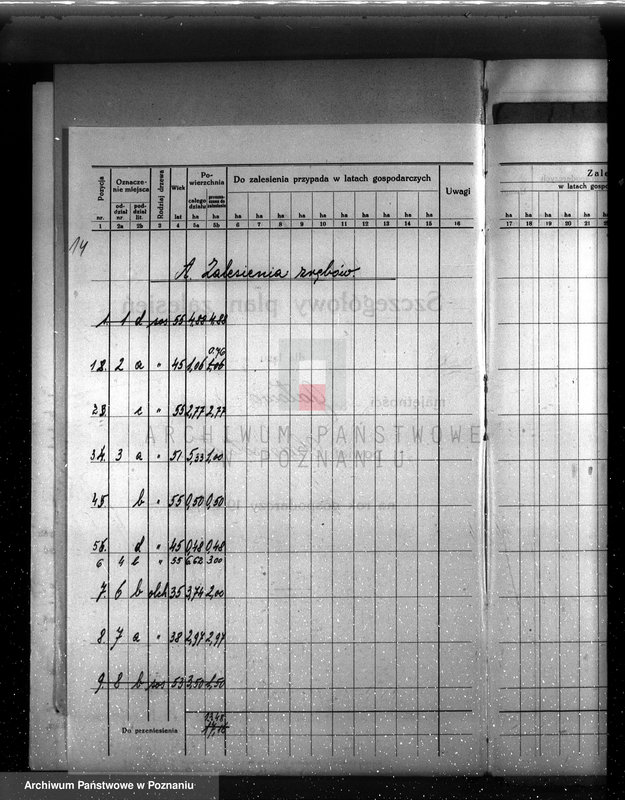 14
Pozycja
Oznaczenie miejsca
Rodzaj drzewa
Wiek
Powierzchnia
Do zalesienia przypada w latach gospodarczych
Uwagi
Zale
w latach gospo
oddział
poddział
całego działu
nr.
nr
lit.
lat
ha ha ha ha ha ha ha ha ha ha ha
ha ha ha ha
1 2a 2b 3 4 5a 5b 6 7 8 9 10 11 12 13 14 15 16
17 18 19 20
A. Zalesienia zrębów.
1. 1 d sos 55 4.88 4.88
0.76
2. 2 a " 45 1,06 1,06
c " 55 2,77 2,77
3 a " 51 5,33 1,00
b " 55 0,50 0,50
d " 45 0,48 0,48
6 4 b " 55 6.62 3.00
7. 6 b olch 35 3,74 2,00
8. 7 a " 38 2,97 2,97
9. 8 b sos 53 3,50 1,50
13.48
Do przeniesienia
Szczegółowy plan zalesień
majętności
ARCHIWUM PAŃSTWOWE
W POZNANIU
Archiwum Państwowe w Poznaniu